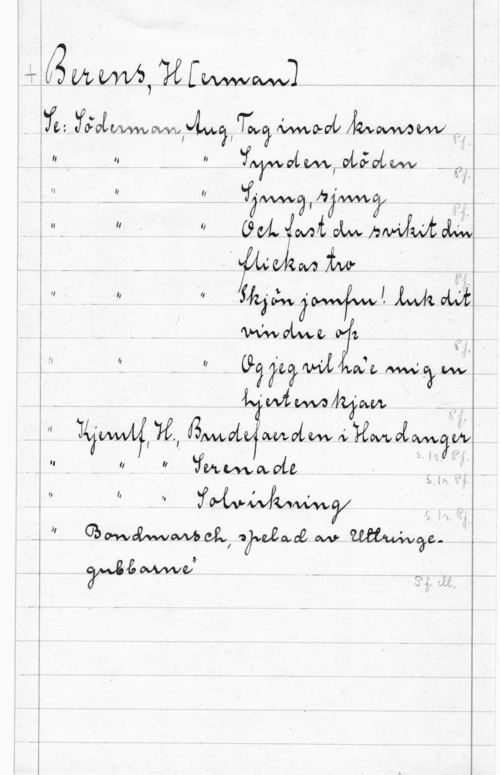 + Berens, H[erman]
Se: Söderman, Aug, Tag imod kransen Pf.
" " " Synden, döden Pf.
" " " Sjung, sjung Pf.
" " " Och fast du svikit din
flickas tro Pf.
" " " Skjön jomfru! luk dit
vindue op Pf.
" " " Og jeg vil ha'e mig en
hjertenskjaer Pf.
" Kjerulf, H., Brudefaerden i Hardanger S. 1 r. Pf.
" " " Serenade S. 1 r. Pf.
" " " Solvirkning S. 1 r. Pf.
" Bondmarsch, spelad av Uttringe-
gubbarne" Pf.